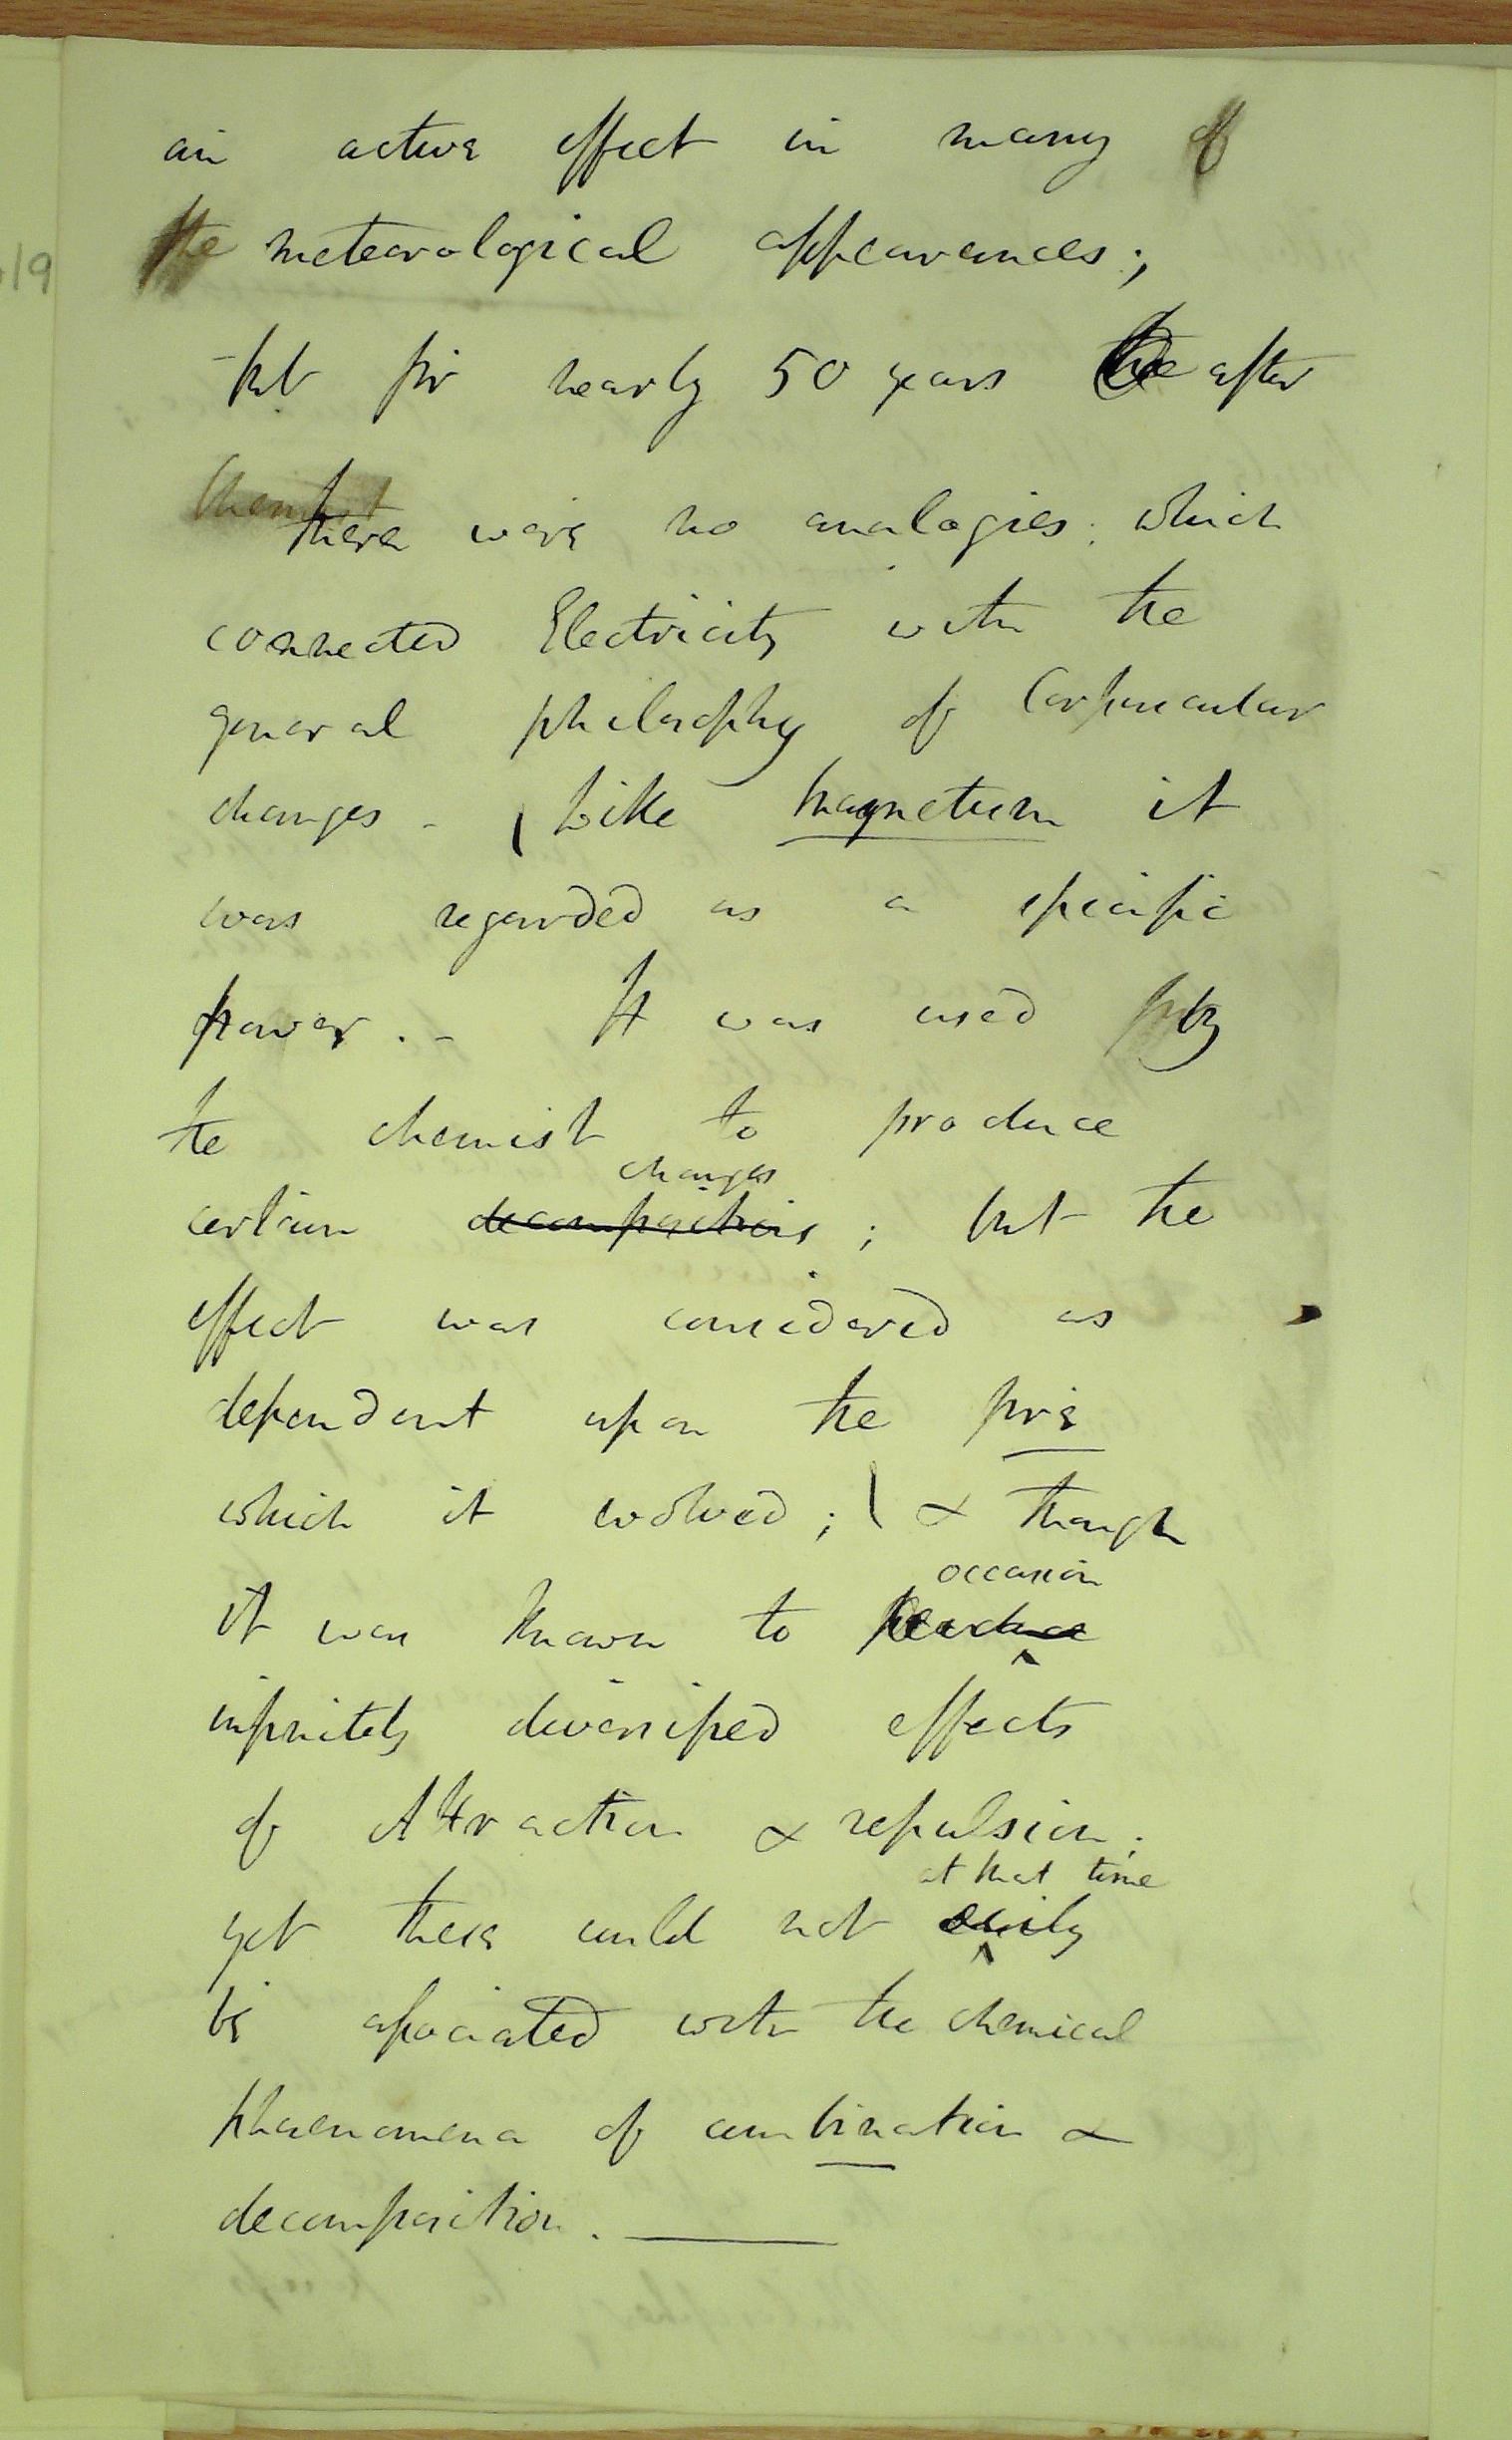 an active effect in many of
the meteorological appearances;
– but for nearly 50 years after
there were no analogies which
connected Electricity with the
general philosophy of Corpuscular
changes – Like magnetism it
was regarded as a specific
power. – It was used by
the chemist to produce
changes
certain decompositions ; but the
effect was considered as
dependent upon the fire
which it evolved; & though
occasion
it was known to produce
infinitely diversified effects
of Attraction & repulsion;
at that time
yet these could not easily
be associated with the chemical
phaenomena of combination &
decomposition. ——